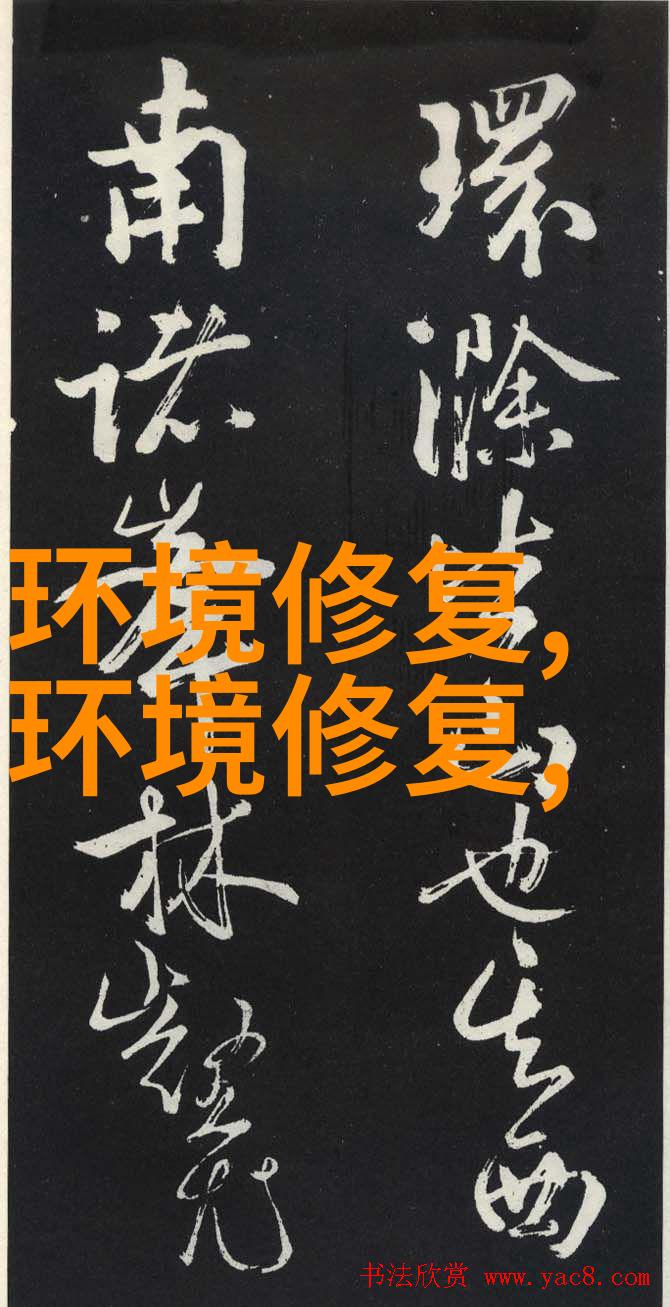 環滁皆山也其西
南諸峯林壑尤
环境修复,
环境修复,
书法欣赏 www.yac8.com